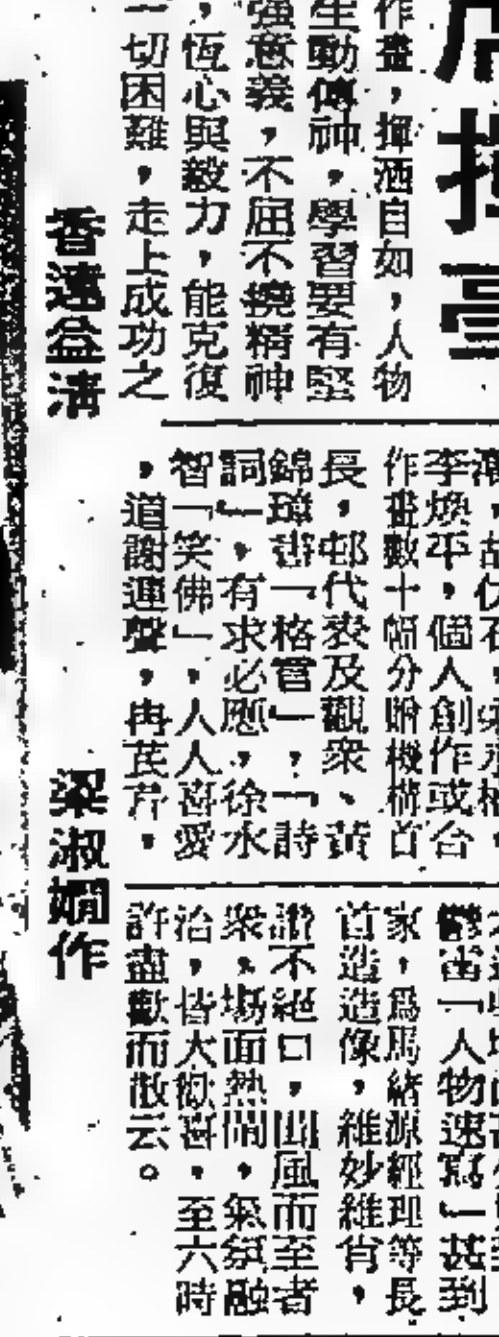 揮毫
作畫，揮洒自如，人物
生動傳神，學習要有堅
強意義，不屈不撓精神
，恆心與毅力，能克復
一切困難，走上成功之
李煥平，個人創作或台
作畫數十幅分贈機構首
長，邨代表及觀衆、黃
錦璋書「格言」，「詩
詞」，有求必應，徐水
智「笑佛」，人人喜愛
，道謝連聲，冉茂芹，
出「人物速寫」甚到
家，爲馬緒源經理等長
首造造像，維妙維肖，
讚不絕口，聞風而至者
衆，場面熱鬧，氣氛融
洽，皆大歡喜，至六時
許盡歡而散云。
香遠益清
梁淑嫻作